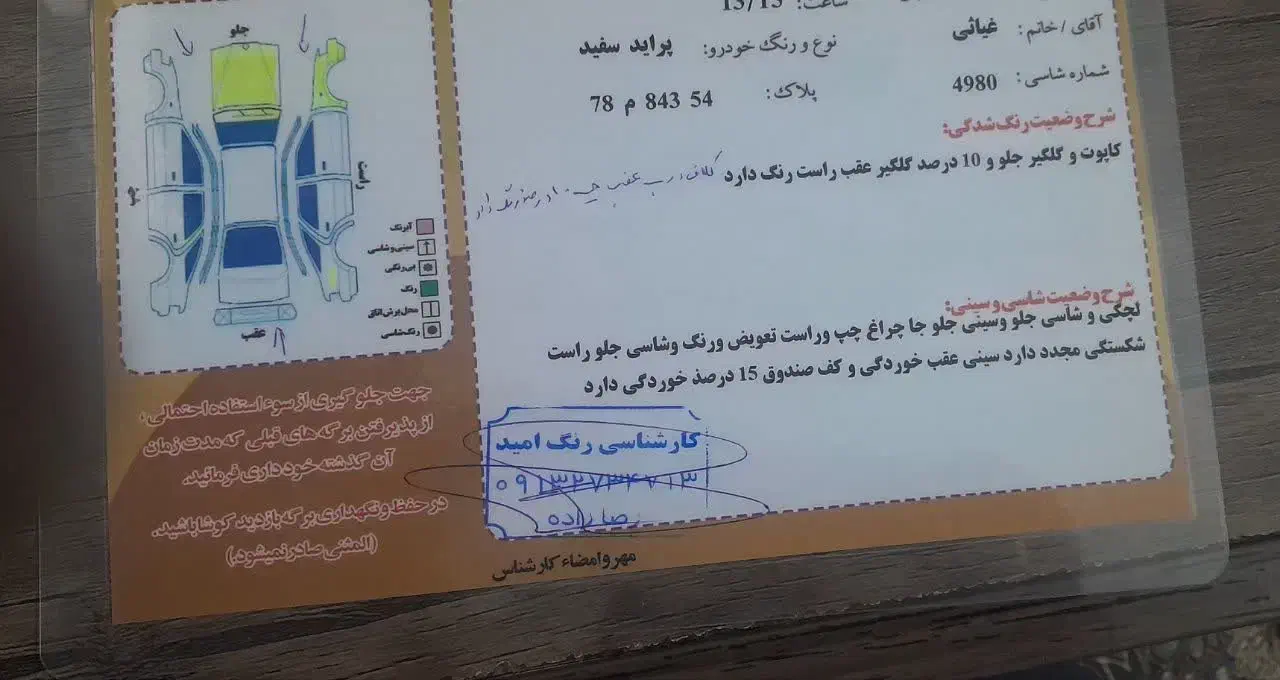 ساعت: 13/15
آقای / خانم : غیاثی
نوع و رنگ خودرو: پراید سفید
شماره شاسی : 4980
پلاک: 54 843 م 78
شرح وضعیت رنگ شدگی:
کاپوت و گلگیر جلو و 10 درصد گلگیر عقب راست رنگ دارد
درب عقب چپ ۱۰ درصد رنگ دارد
شرح وضعیت شاسی و سینی:
لچکی و شاسی جلو وسینی جلو جا چراغ چپ وراست تعویض ورنگ وشاسی جلو راست
شکستگی مجدد دارد سینی عقب خوردگی و کف صندوق 15 درصذ خوردگی دارد
کارشناسی رنگ امید
۰۹۱۳۲۷۳۴۷۱۳
رضازاده
مهر وامضاء کارشناس
جلو
راست
عقب
آبرنگ
سینی و شاسی
بی رنگی
رنگ
محل برش اتاق
رنگ شاسی
جهت جلو گیری از سوء استفاده احتمالی ،
از پذیرفتن برگه های قبلی که مدت زمان
آن گذشته خود داری فرمائید.
در حفظ و نگهداری برگه بازدید کوشا باشید.
(المثنی صادر نمیشود.)